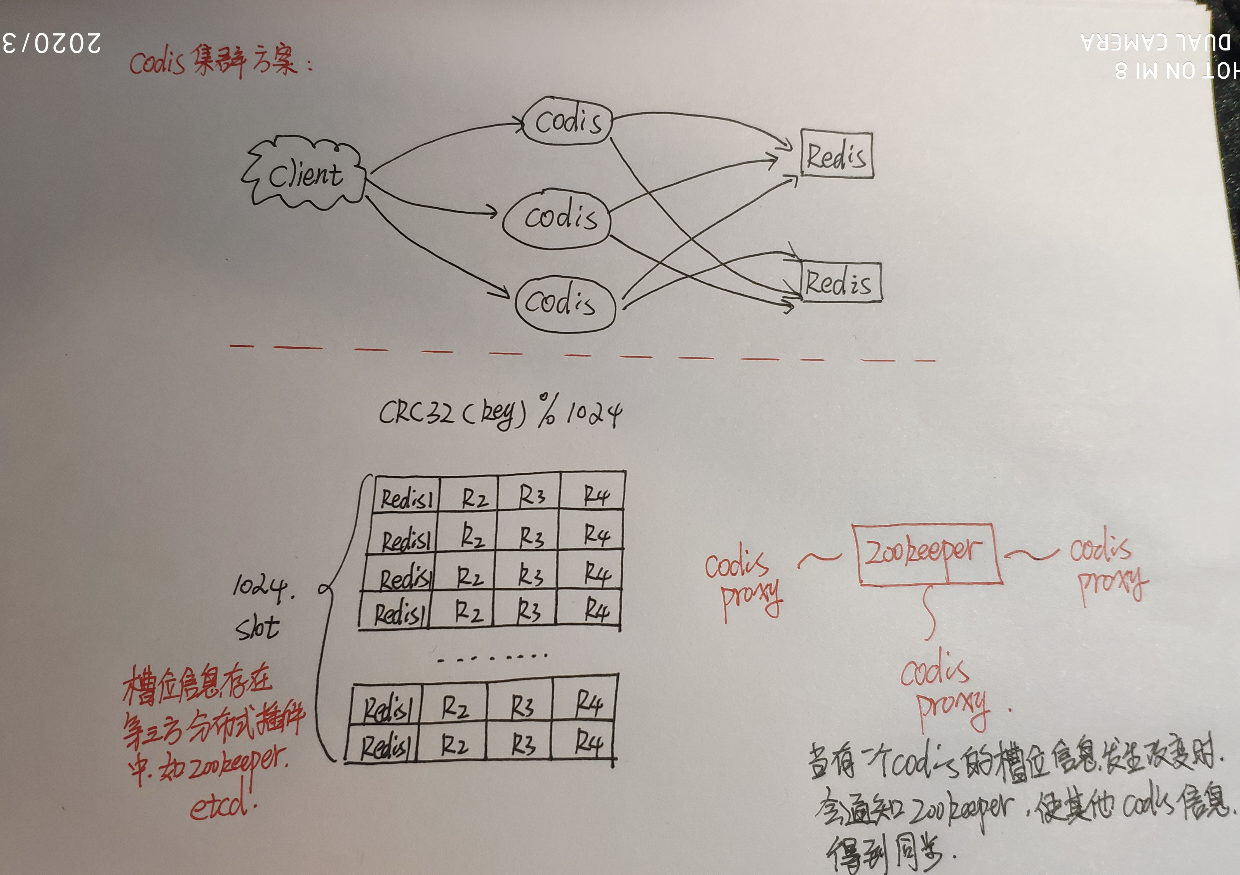 2020/3
SHOT ON MI 8
DUAL CAMERA
codis 集群方案:
Client
codis
codis
codis
Redis
Redis
CRC32(key) % 1024
Redis1 R2 R3 R4
Redis1 R2 R3 R4
Redis1 R2 R3 R4
Redis1 R2 R3 R4
........
Redis1 R2 R3 R4
Redis1 R2 R3 R4
1024.
slot
槽位信息存在
第三方分布式插件
中.如zookeeper.
etcd.
zookeeper
codis
proxy
codis
proxy
codis
proxy.
当有一个codis的槽位信息发生改变时.
会通知zookeeper,使其他codis信息.
得到同步.